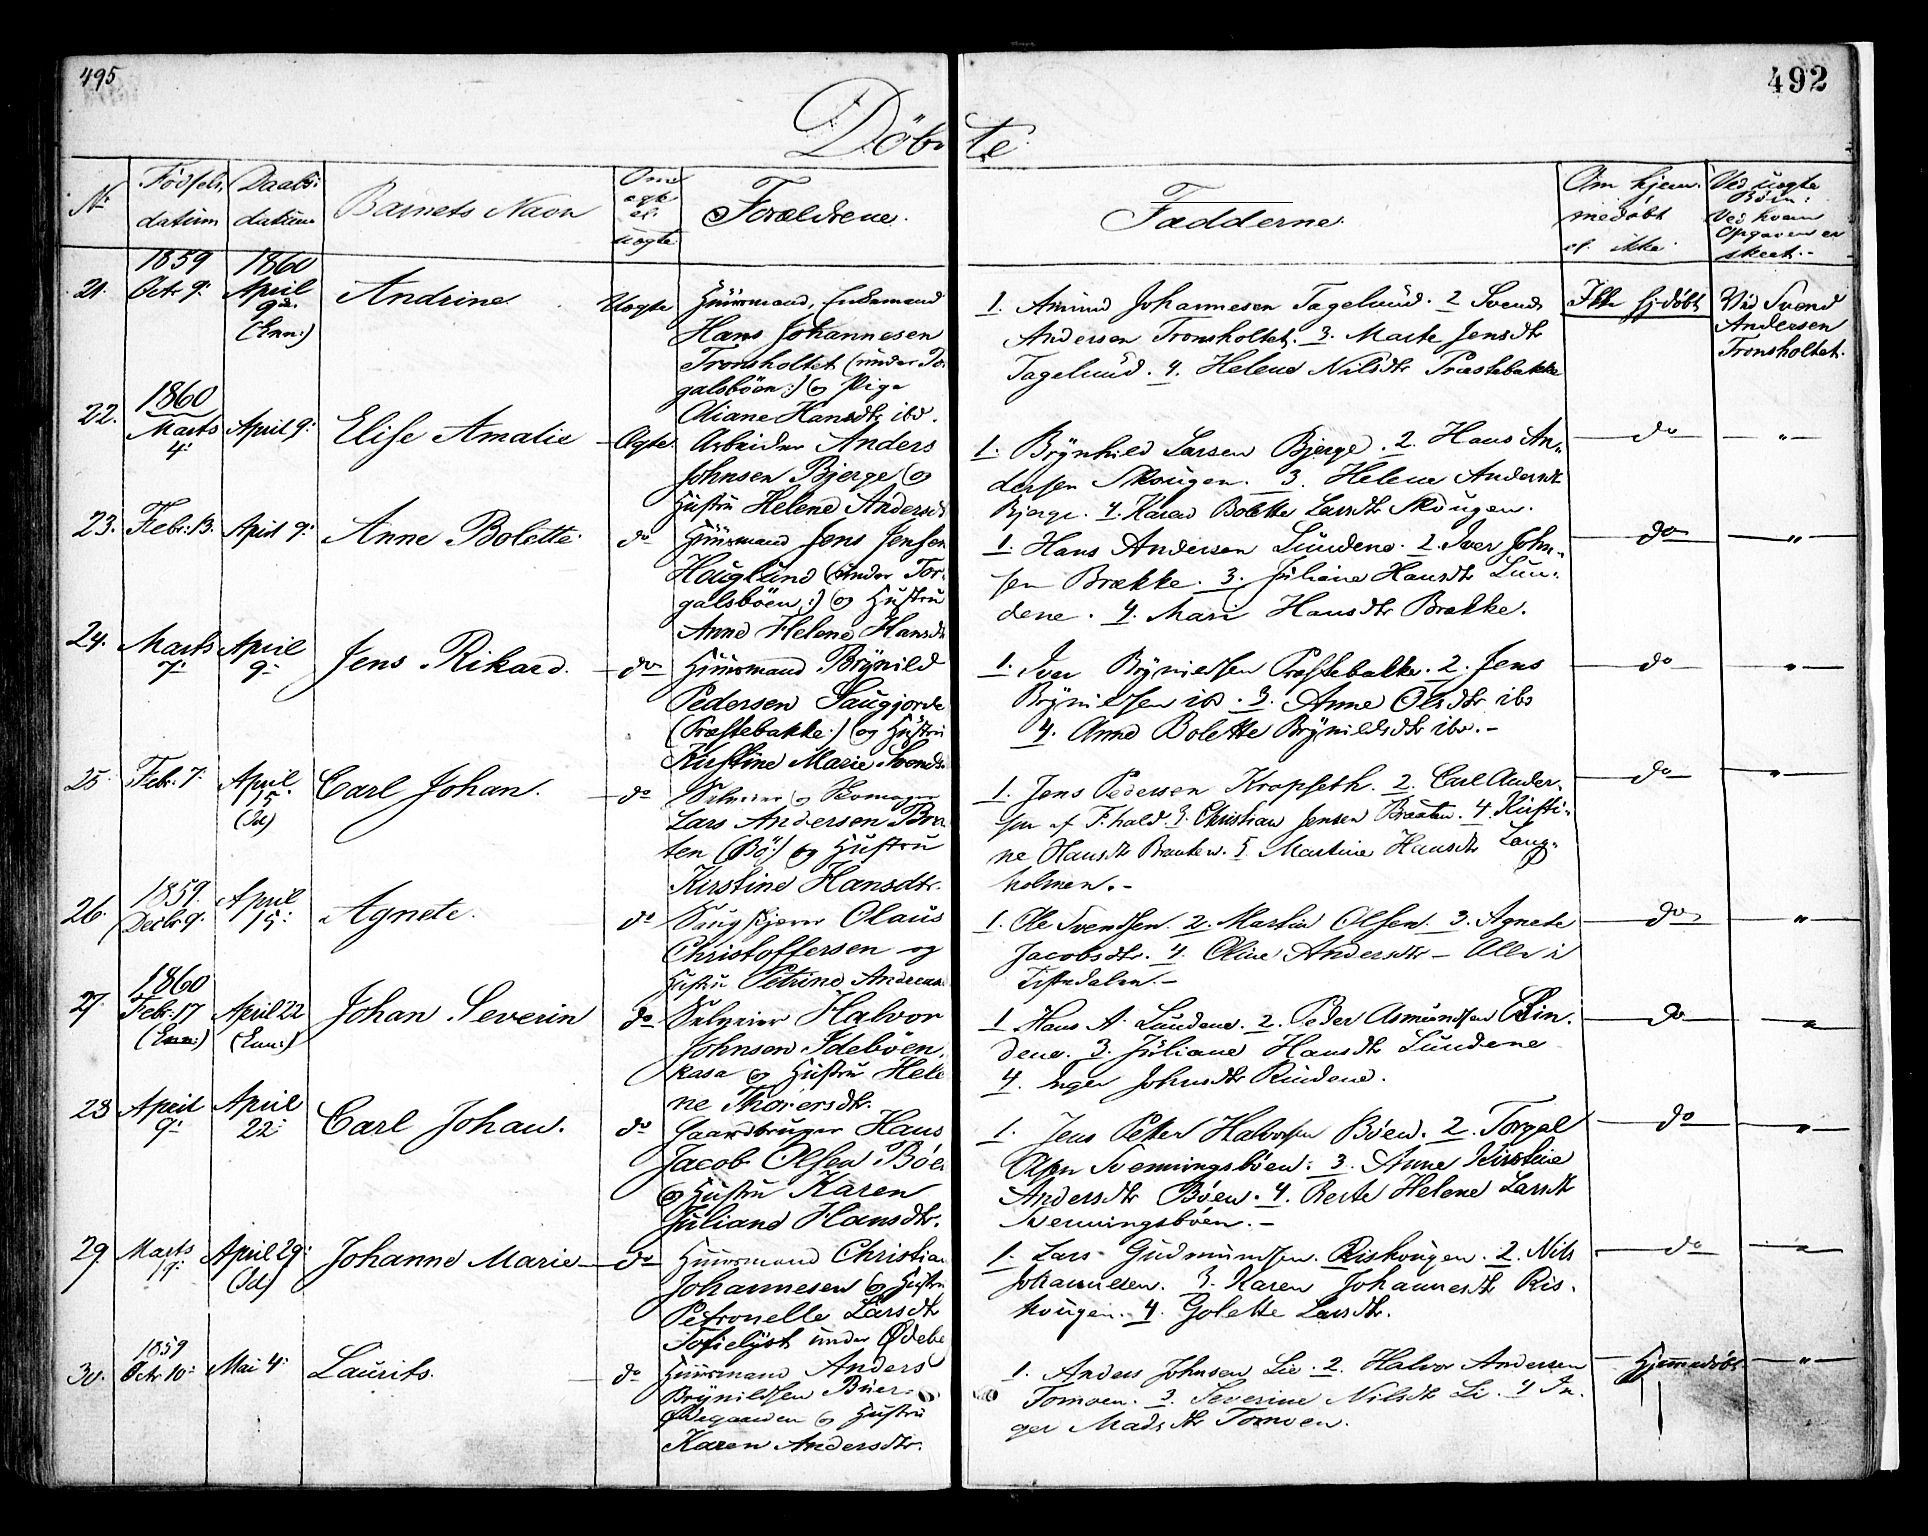 495
492
Döbte
No
Födsels,
datum
Daabs:
datum
Barnets Navn
Om
ægte
el.
uægte
Forældrene.
Fadderne.
Om hjem:
medöbt
el. ikke
Ved uægte
Börn:
Ved hvem
Opgaven er
skeet.-
21.
1859
Octr 9:
1860
April
9d.
(Enn:)
Andrine.
Uægte
Huusmand, Enkemand
Hans Johannesen
Tronsholtet (under Tor
galsböen:) og Pige
Oliane Hansdtr ibd.
1. Amund Johannesen Tagelund. 2 Svend
Andersen Tronsholtet. 3. Marte Jensdtr
Tagelund. 4. Helene Nilsdtr Præstebakke
Ikke hj:döbt
Ved Svend
Andersen
Tronsholtet.
22.
1860
Marts
4:
April 9:
Elise Amalie
Ægte.
Arbeider Anders
Johnsen Bjerge og
Hustru Helene Andersd
1. Brÿnhild Larsen Bjerge. 2. Hans An„
dersen Skougen. 3. Helene Andersdtr
Bjerge. 4. Karen Bolette Larsdtr Skougen.
do
"
23.
Febr: 13.
April 9:
Anne Bolette
do
Huusmand Jens Jensen
Houglund (under Tor„
galsböen:) og Hustru
Anne Helene Hansdtr
1. Hans Andersen Lundene. 2. Iver John„
sen Brække. 3. Juliane Hansdtr Lun„
dene. 4. Mari Hansdtr Brække.
do
"
24.
Marts
7:
April
9:
Jens Rikard.
do
Huusmand Brÿnild
Pedersen Saugjorde
(Præstebakke:) og Hustru
Kirstine Marie Svendsd
1. Iver Brÿnildsen Præstebakke. 2. Jens
Brÿnildsen ibd. 3. Anne Olsdtr ibd
4. Anne Bolette Brÿnildsdtr ibd.-
do
"
25.
Febr. 7:
April
15.
(Id)
Carl Johan.
do
Selveier og Skomager
Lars Andersen Braa
ten (Bö:) og Hustru
Kirstine Hansdtr.
1. Jens Pedersen Kropseth. 2. Carl Ander„
sen af F.hald. 3. Christian Jensen Braaten. 4. Kirsti„
ne Hansdtr Braaten. 5. Martine Hansdtr Lang„
holmen.-
do
"
26.
1859.
Decbr 9.
April
15:
Agnete.
do
Saugskjerer Olaus
Christoffersen og
Hustru Petrine Andreas
1. Ole Svendsen. 2. Martin Olsen. 3. Agnete
Jacobsdtr. 4. Oline Andersdtr – Alle i
Tistedalen.-
do
"
27.
1860
Febr. 17
(Enn:)
April 22
(Enn:)
Johan Severin
do
Selveier Halvor
Johnsen Ideböen,
kasa og Hustru Hele
ne Thorersdtr.
1 Hans A. Lundene. 2. Peder Asmundsen
dene. 3. Juliane Hansdtr Lundene
4. Inger Johnsdtr Rindene.
do
"
28
April
9:
April
22:
Carl Johan.
do
Gaardbruger Hans
Jacob Olsen Böen
og Hustru Karen
Juliane Hansdtr.
1. Jens Petter Halvorsen Böen. 2. Torgal
Svenningsböen. 3. Anne Kirstine
Andersdtr Böen. 4. Berte Helene Larsdtr
Svenningsböen.-
do
"
29.
Marts
April 29:
(Id)
Johanne Marie
do
Huusmand Christian
Johannesen og Hustru
Petronelle Larsdtr
Sofielyst under Ödebe
1. Lars Gudmundsen Riskougen. 2. Nils
Johannesen. 3. Karen Johannesdtr Ris„
kougen. 4. Golette Larsdtr.
do
"
30.
1859
Octr 10:
Mai 4:
Laurits.
do
Huusmand Anders
Brÿnildsen Buer-
Ödegaarden og Hustru
Karen Andersdtr.
1. Anders Johnsen Lie. 2. Halvor Andersen
Tomoen. 3. Severine Nilsdtr Li. 4 In„
ger Madsdtr Tomoen.
Hjemmedöbt
"